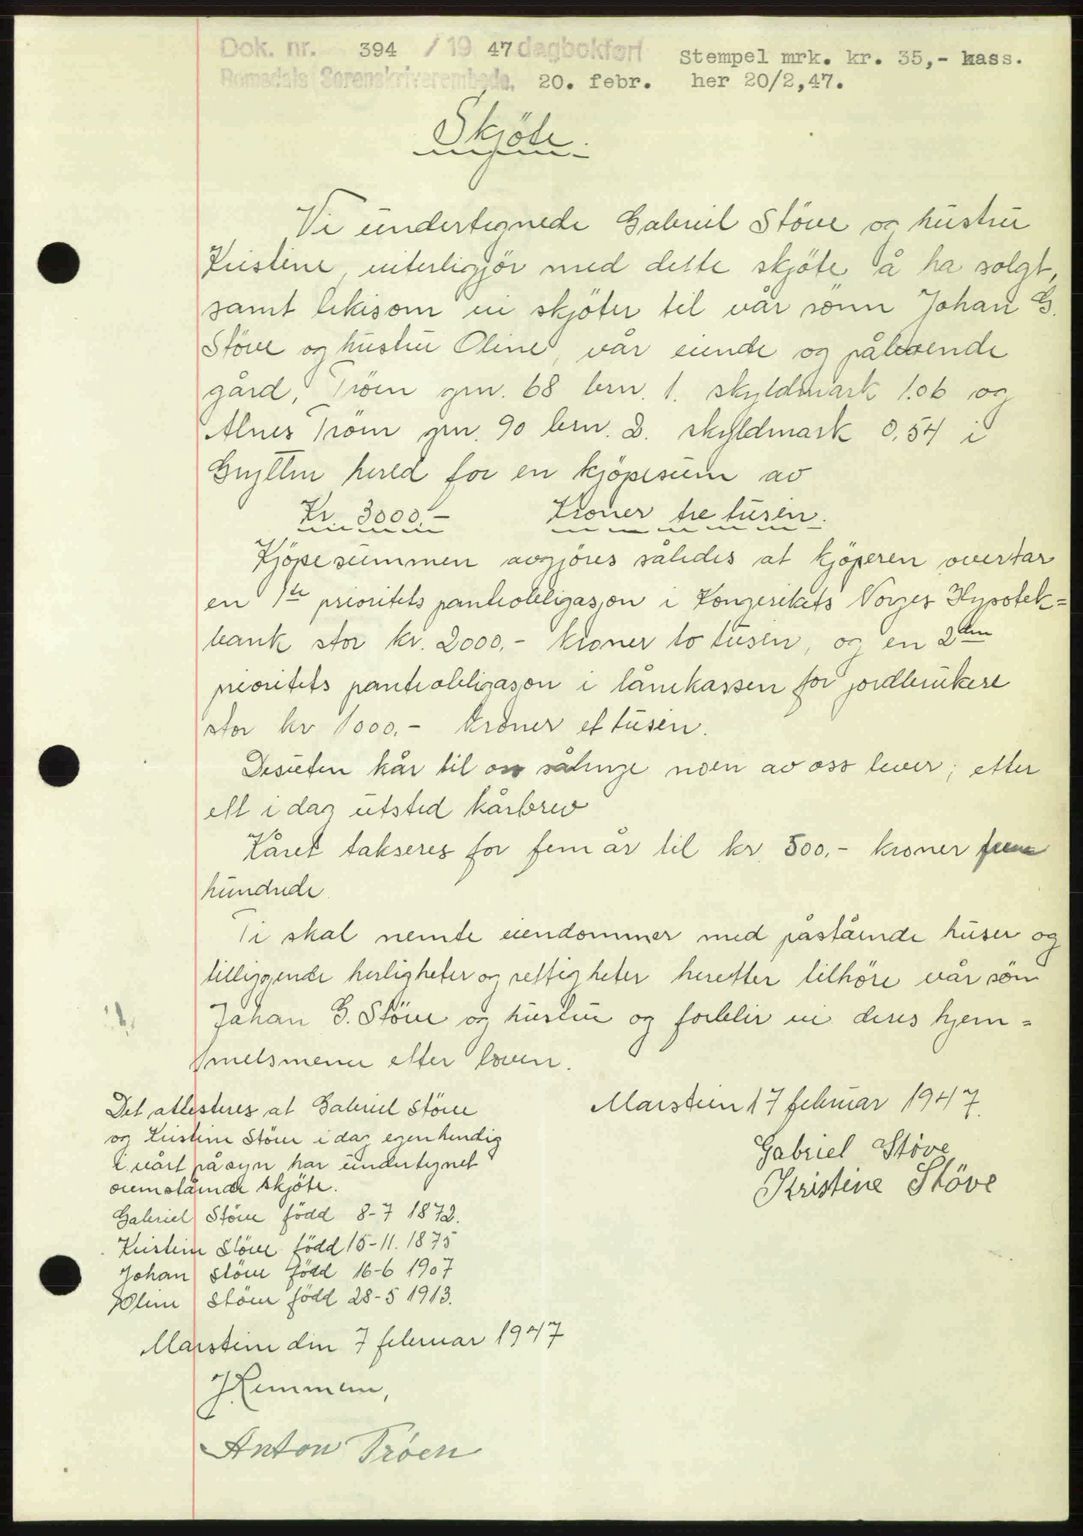 Dok. nr. 394 / 19 47 dagbokført Stempel mrk. kr. 35,- kass.
Romsdals Sorenskriverembede. 20. febr. her 20/2,47.
Skjöte.
Vi undertegnede Gabriel Stöve og hustru
Kristine, viterligjör med dette skjöte å ha solgt,
samt likisom vi skjöter til vår sönn Johan G.
Stöve og hustru Oline, vår eiende og påboende
gård, Tröen grn. 68 brn. 1. skyldmark 1.06 og
Alnes Tröen grn. 90 brn. 2. skyldmark 0,54 i
Grytten hered for en kjöpesum av
Kr. 3000.- Kroner tre tusen.
Kjöpesummen avgjöres således at kjöperen overtar
en 1ste prioritets panteobligasjon i Kongerikets Norges Hypotek=
bank stor kr. 2000.- kroner to tusen, og en 2den
prioritets panteobligasjon i lånekassen for jordbrukere
stor kr 1000.- kroner et tusen.
Desuten kår til oss sålenge noen av oss lever; etter
ett i dag utsted kårbrev
Kåret takseres for fem år til kr. 500.- kroner fem
hundrede.
Ti skal nemte eiendommer med påstående huser og
tilliggende herligheter og rettigheter heretter tilhöre vår sön
Johan G. Stöve og hustru og forblir vi deres hjem=
melsmenn etter loven.
Marstein 17 februar 1947.
Gabriel Stöve
Kristine Stöve
Det attesteres at Gabriel Stöve
og Kristine Stöve i dag egenhendig
i vårt påsyn har undertegnet
ovenstående skjöte.
Gabriel Stöve född 8-7 1872.
Kristine Stöve född 15-11. 1875
Johan Stöve född 16-6 1907
Oline Stöve född 28-5 1913.
Marstein den 7 februar 1947
Anton Trøen